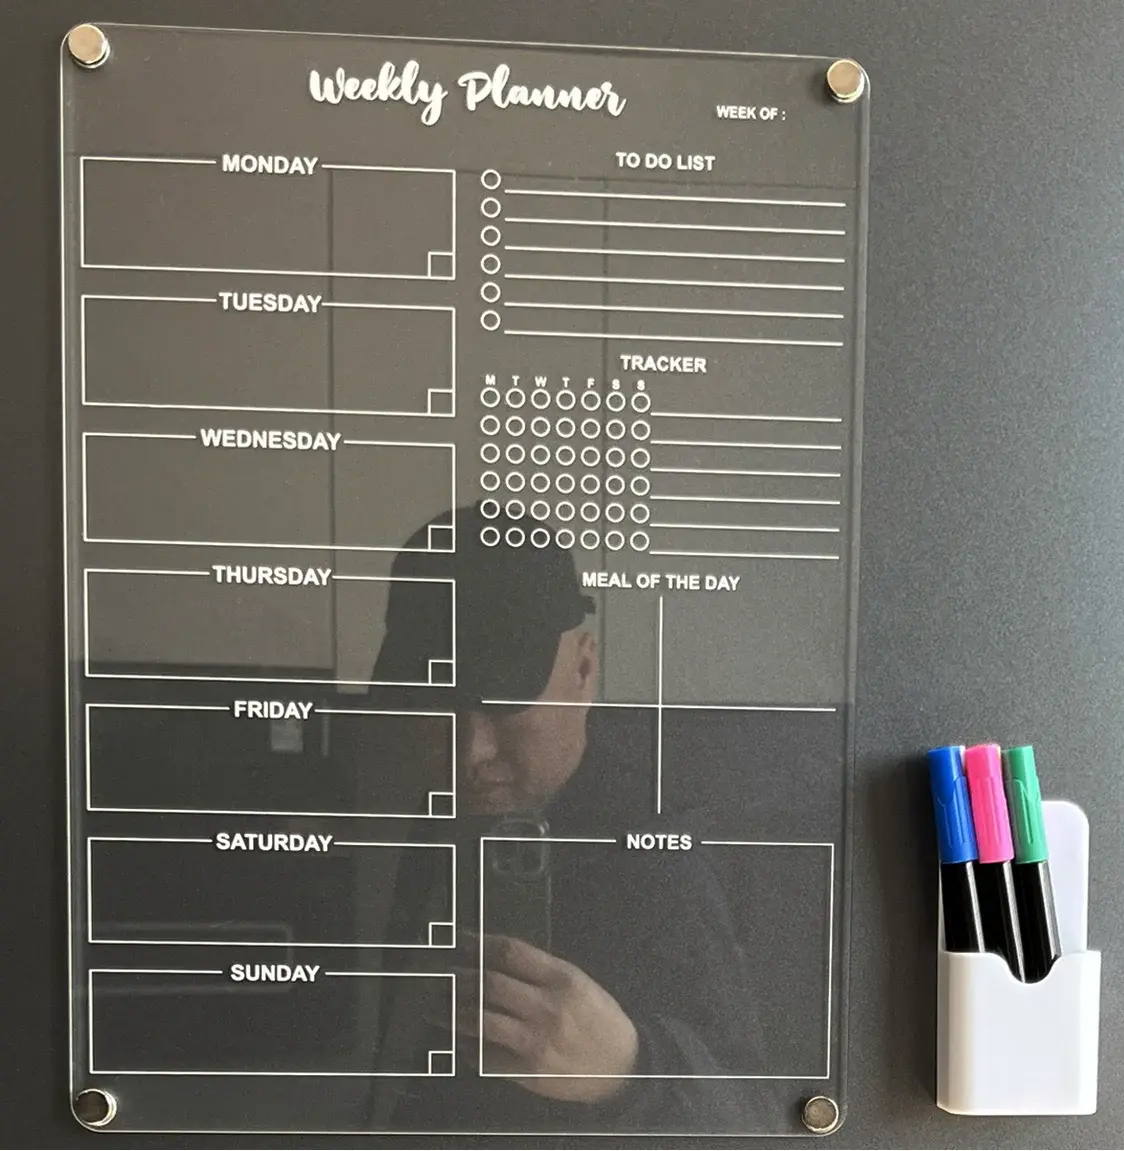 Weekly Planner
WEEK OF :
MONDAY
TUESDAY
WEDNESDAY
THURSDAY
FRIDAY
SATURDAY
SUNDAY
TO DO LIST
TRACKER
M T W T F S S
MEAL OF THE DAY
NOTES